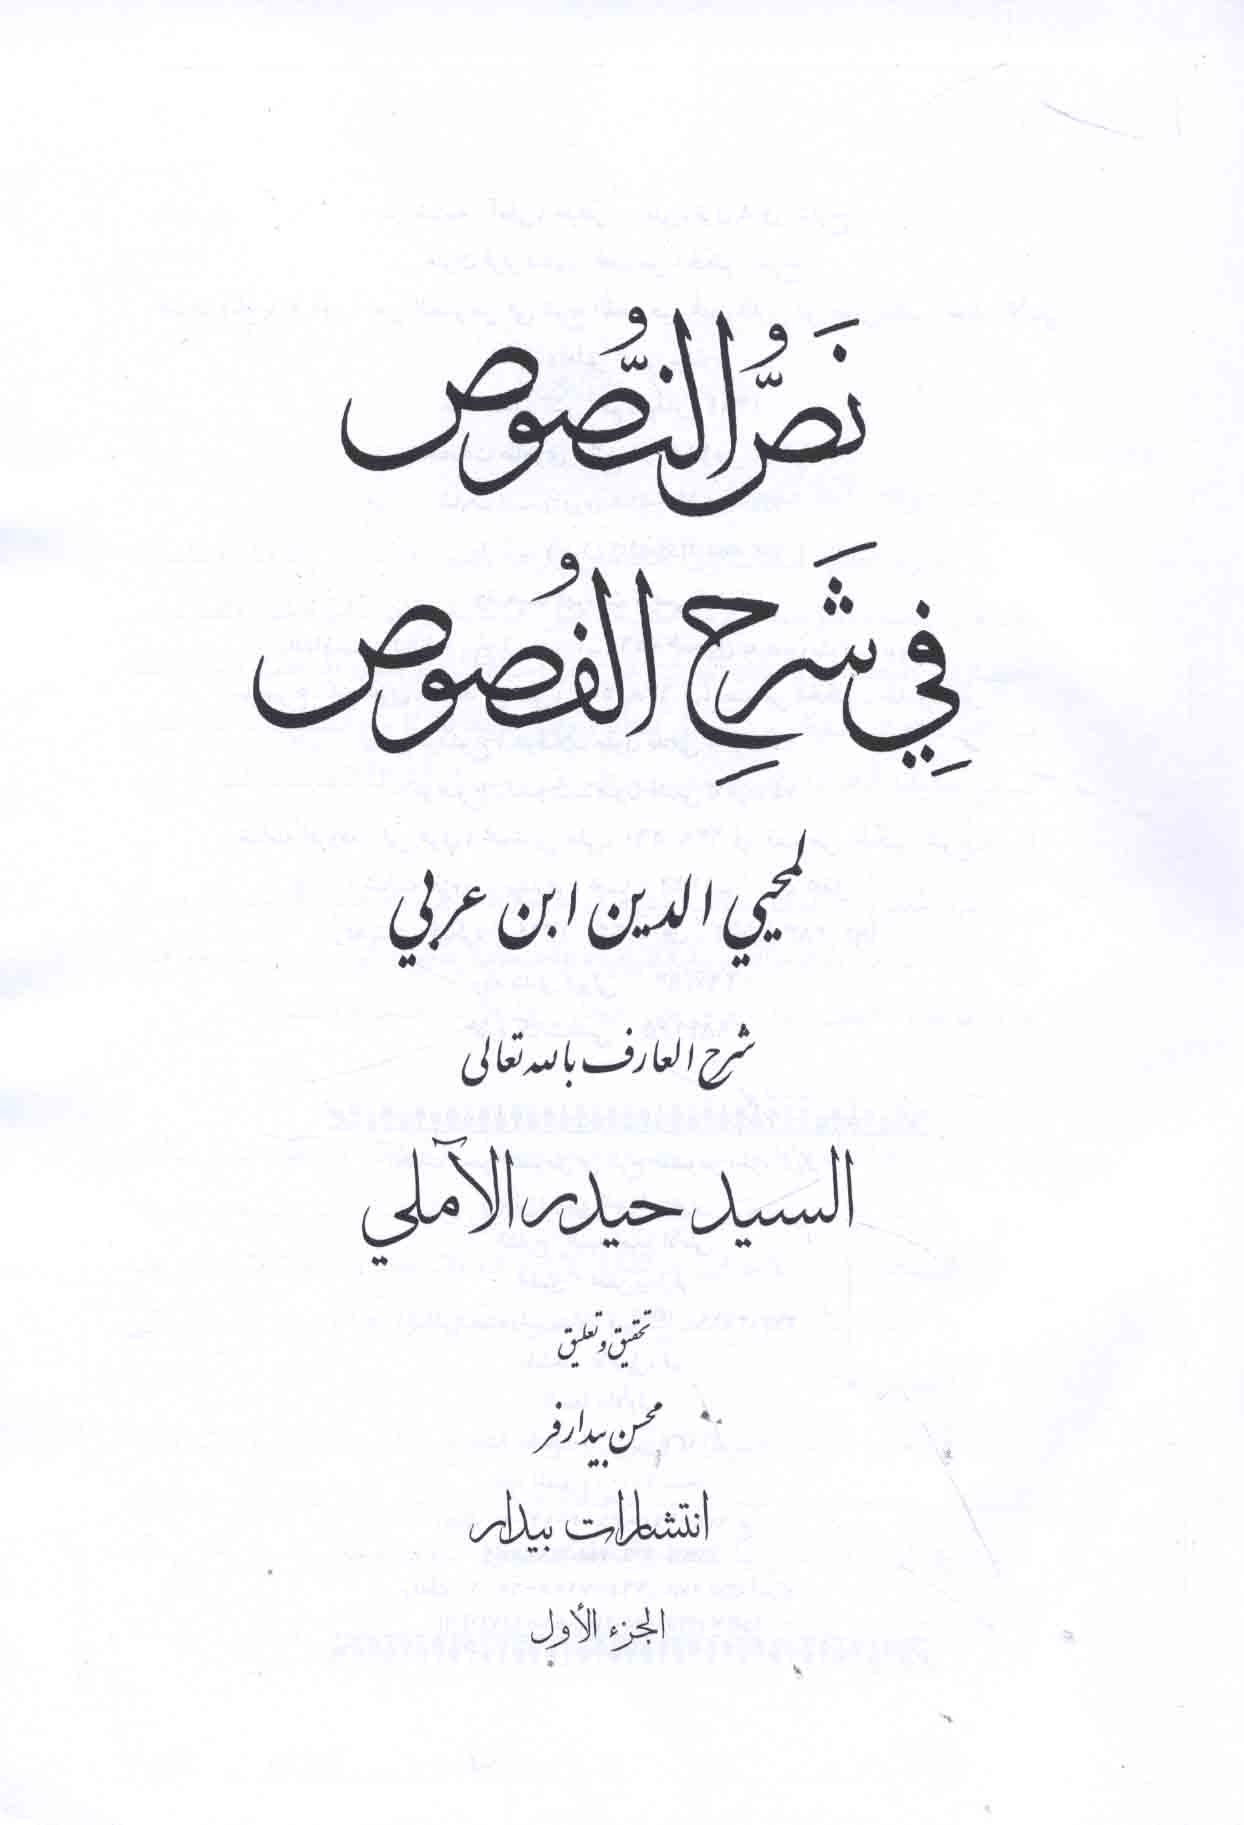 نَصُّ النُّصُوص
فِي شَرحِ الفُصُوص
لمحيي الدين ابن عربي
شرح العارف بالله تعالى
السيد حيدر الآملي
تحقيق وتعليق
محسن بيدارفر
انتشارات بيدار
الجزء الأول